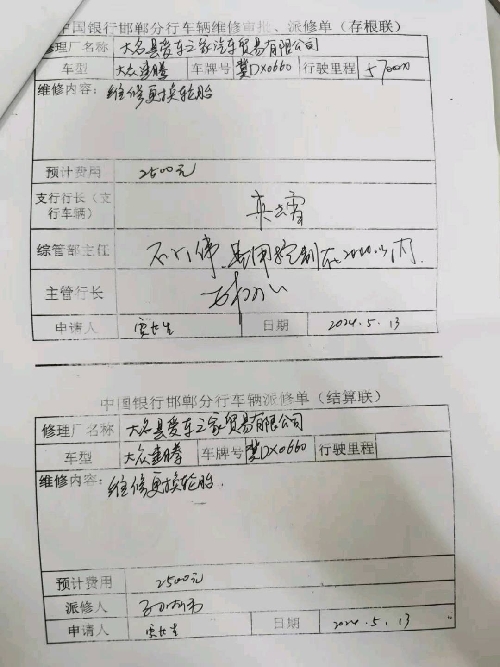 中国银行邯郸分行车辆维修审批、派修单（存根联）
修理厂名称 大名县爱车之家汽车贸易有限公司
车型 大众速腾 车牌号 冀DX0660 行驶里程
维修内容：维修更换轮胎
预计费用 2500元
支行行长（支行车辆）
综管部主任 费用控制在2000以内
主管行长
申请人 日期 2024.5.13
中国银行邯郸分行车辆派修单（结算联）
修理厂名称 大名县爱车之家贸易有限公司
车型 大众速腾 车牌号 冀DX0660 行驶里程
维修内容：维修更换轮胎.
预计费用 2500元
派修人
申请人 日期 2024.5.13